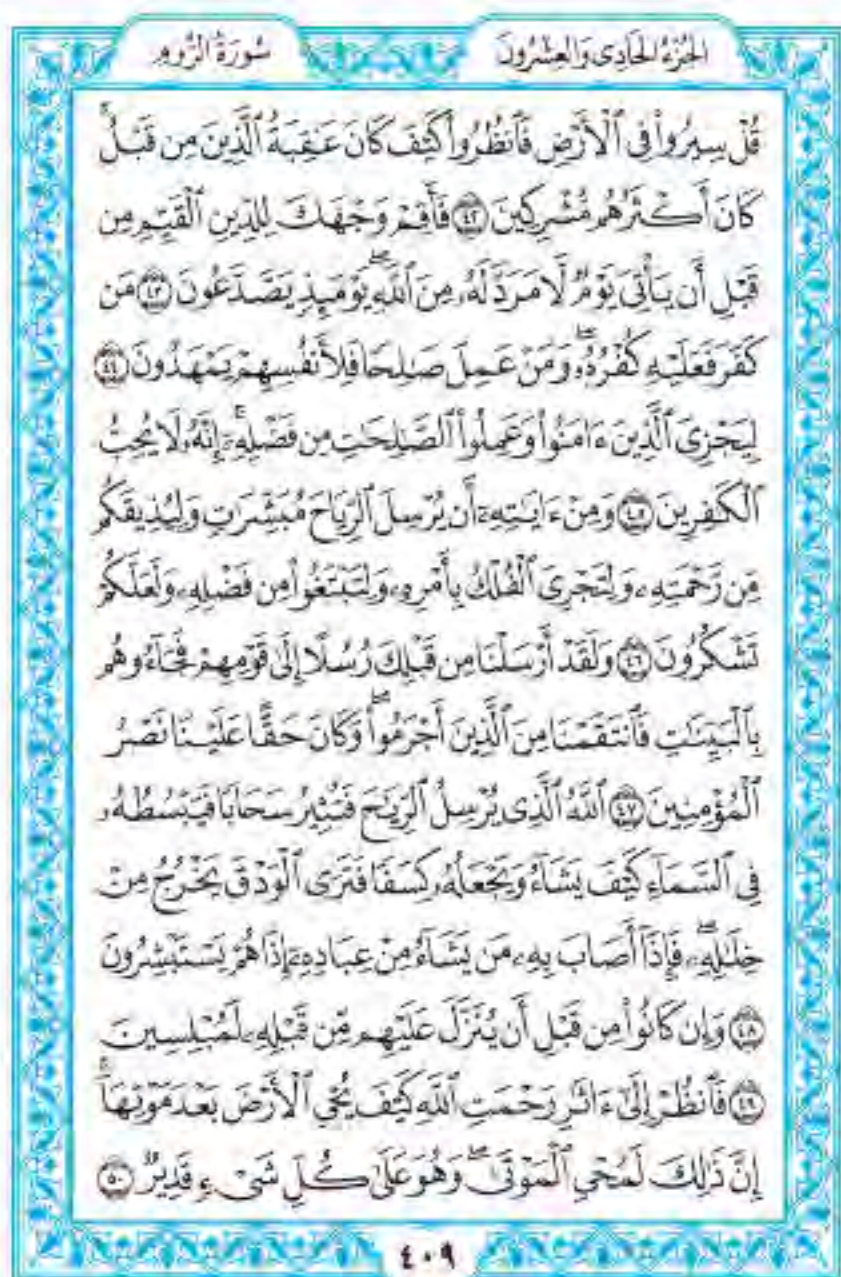 الجزء الحادى والعشرون
سورة الروم
قُلْ سِيرُواْ فِي ٱلْأَرْضِ فَٱنظُرُواْ كَيْفَ كَانَ عَٰقِبَةُ ٱلَّذِينَ مِن قَبْلُۚ
كَانَ أَكْثَرُهُم مُّشْرِكِينَ ٤٢ فَأَقِمْ وَجْهَكَ لِلدِّينِ ٱلْقَيِّمِ مِن
قَبْلِ أَن يَأْتِيَ يَوْمٌ لَّا مَرَدَّ لَهُۥ مِنَ ٱللَّهِۖ يَوْمَئِذٍ يَصَّدَّعُونَ ٤٣ مَن
كَفَرَ فَعَلَيْهِ كُفْرُهُۥۖ وَمَنْ عَمِلَ صَٰلِحًا فَلِأَنفُسِهِمْ يَمْهَدُونَ ٤٤
لِيَجْزِيَ ٱلَّذِينَ ءَامَنُواْ وَعَمِلُواْ ٱلصَّٰلِحَٰتِ مِن فَضْلِهِۦٓۚ إِنَّهُۥ لَا يُحِبُّ
ٱلْكَٰفِرِينَ ٤٥ وَمِنْ ءَايَٰتِهِۦٓ أَن يُرْسِلَ ٱلرِّيَاحَ مُبَشِّرَٰتٍ وَلِيُذِيقَكُم
مِّن رَّحْمَتِهِۦ وَلِتَجْرِيَ ٱلْفُلْكُ بِأَمْرِهِۦ وَلِتَبْتَغُواْ مِن فَضْلِهِۦ وَلَعَلَّكُمْ
تَشْكُرُونَ ٤٦ وَلَقَدْ أَرْسَلْنَا مِن قَبْلِكَ رُسُلًا إِلَىٰ قَوْمِهِمْ فَجَآءُوهُم
بِٱلْبَيِّنَٰتِ فَٱنتَقَمْنَا مِنَ ٱلَّذِينَ أَجْرَمُواْۖ وَكَانَ حَقًّا عَلَيْنَا نَصْرُ
ٱلْمُؤْمِنِينَ ٤٧ ٱللَّهُ ٱلَّذِي يُرْسِلُ ٱلرِّيَٰحَ فَتُثِيرُ سَحَابًا فَيَبْسُطُهُۥ
فِي ٱلسَّمَآءِ كَيْفَ يَشَآءُ وَيَجْعَلُهُۥ كِسَفًا فَتَرَى ٱلْوَدْقَ يَخْرُجُ مِنْ
خِلَٰلِهِۦۖ فَإِذَآ أَصَابَ بِهِۦ مَن يَشَآءُ مِنْ عِبَادِهِۦٓ إِذَا هُمْ يَسْتَبْشِرُونَ
٤٨ وَإِن كَانُواْ مِن قَبْلِ أَن يُنَزَّلَ عَلَيْهِم مِّن قَبْلِهِۦ لَمُبْلِسِينَ
٤٩ فَٱنظُرْ إِلَىٰٓ ءَاثَٰرِ رَحْمَتِ ٱللَّهِ كَيْفَ يُحْيِ ٱلْأَرْضَ بَعْدَ مَوْتِهَآۚ
إِنَّ ذَٰلِكَ لَمُحْيِ ٱلْمَوْتَىٰۖ وَهُوَ عَلَىٰ كُلِّ شَيْءٍ قَدِيرٌ ٥٠
٤٠٩